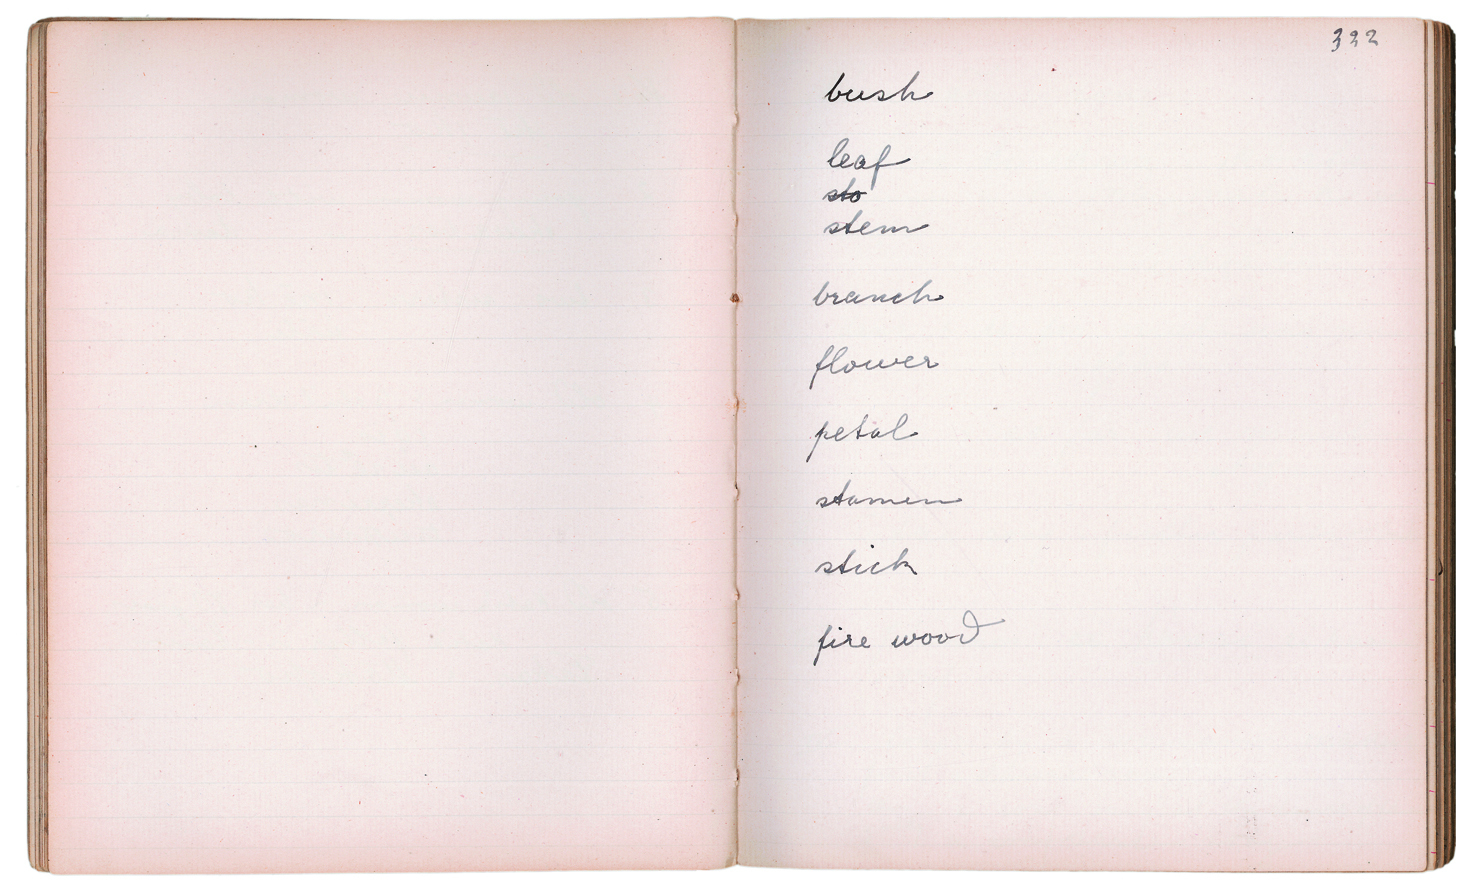 322
bush
leaf
sto
stem
branch
flower
petal
stamen
stick
fire wood